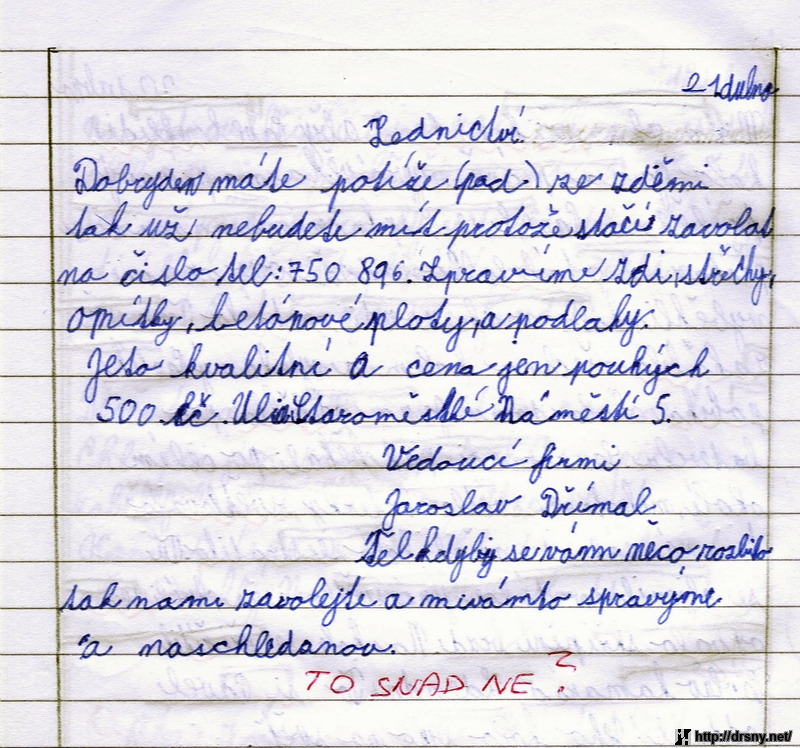 21dubna
Zednictví
Dobryden máte potíže (pad.) ze zděmi
tak už nebudete mít protože stačí zavolat
na čislo tel: 750 896. Zpravíme zdi, střechy,
omítky, betónové ploty, a podlahy.
Jeto kvalitní a cena jen pouhých
500 kč. Staroměstké Náměstí 5.
Vedoucí firmi
Jaroslav Dřímal
Tel kdyby se vánm něco rozbito
tak nami zavolejte a mivámto spravýme
a naschledanou.
TO SNAD NE?
http://drsny.net/